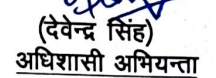 (देवेन्द्र सिंह)
अधिशासी अभियन्ता